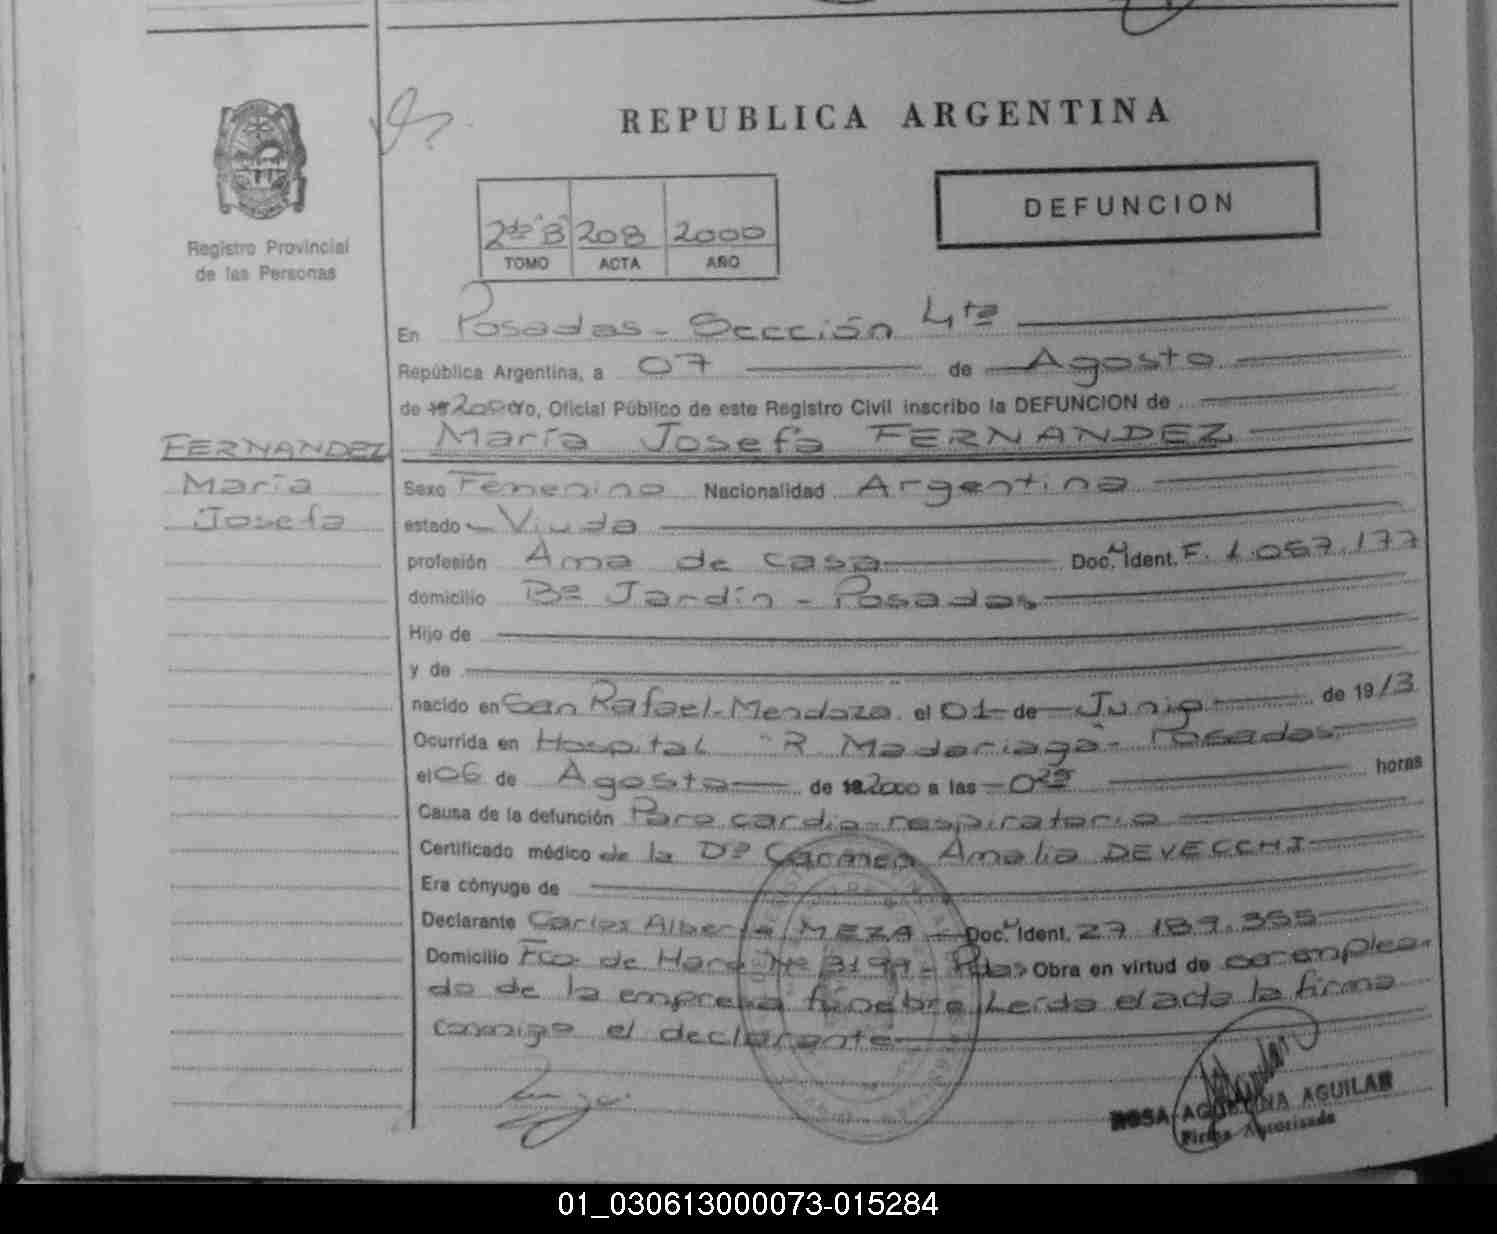 REPUBLICA ARGENTINA
Registro Provincial
de las Personas
2do "B" 208 2000
TOMO ACTA AÑO
DEFUNCION
En Posadas - Sección 4ta
República Argentina, a 07 de Agosto
de 2000 yo, Oficial Público de este Registro Civil inscribo la DEFUNCION de
María Josefa FERNANDEZ
FERNANDEZ
María
Josefa
Sexo Femenino Nacionalidad Argentina
estado Viuda
profesión Ama de casa Doc. Ident. F. 1.057.177
domicilio Bº Jardín - Posadas
Hijo de
y de
nacido en San Rafael - Mendoza el 01 de Junio de 1913
Ocurrida en Hospital "R. Madariaga" - Posadas
el 06 de Agosto de 2000 a las 0 horas
Causa de la defunción Paro cardio-respiratorio
Certificado médico de la Dra Carmen Amalia DEVECCHI
Era cónyuge de
Declarante Carlos Alberto MEZA - Doc. Ident. 27.189.355
Domicilio Fco. de Haro Nº - Pdas Obra en virtud de ser emplea-
do de la empresa fúnebre Leída el acta la firma
conmigo el declarante
ROSA AGUSTINA AGUILAR
Firma Autorizada
01_030613000073-015284